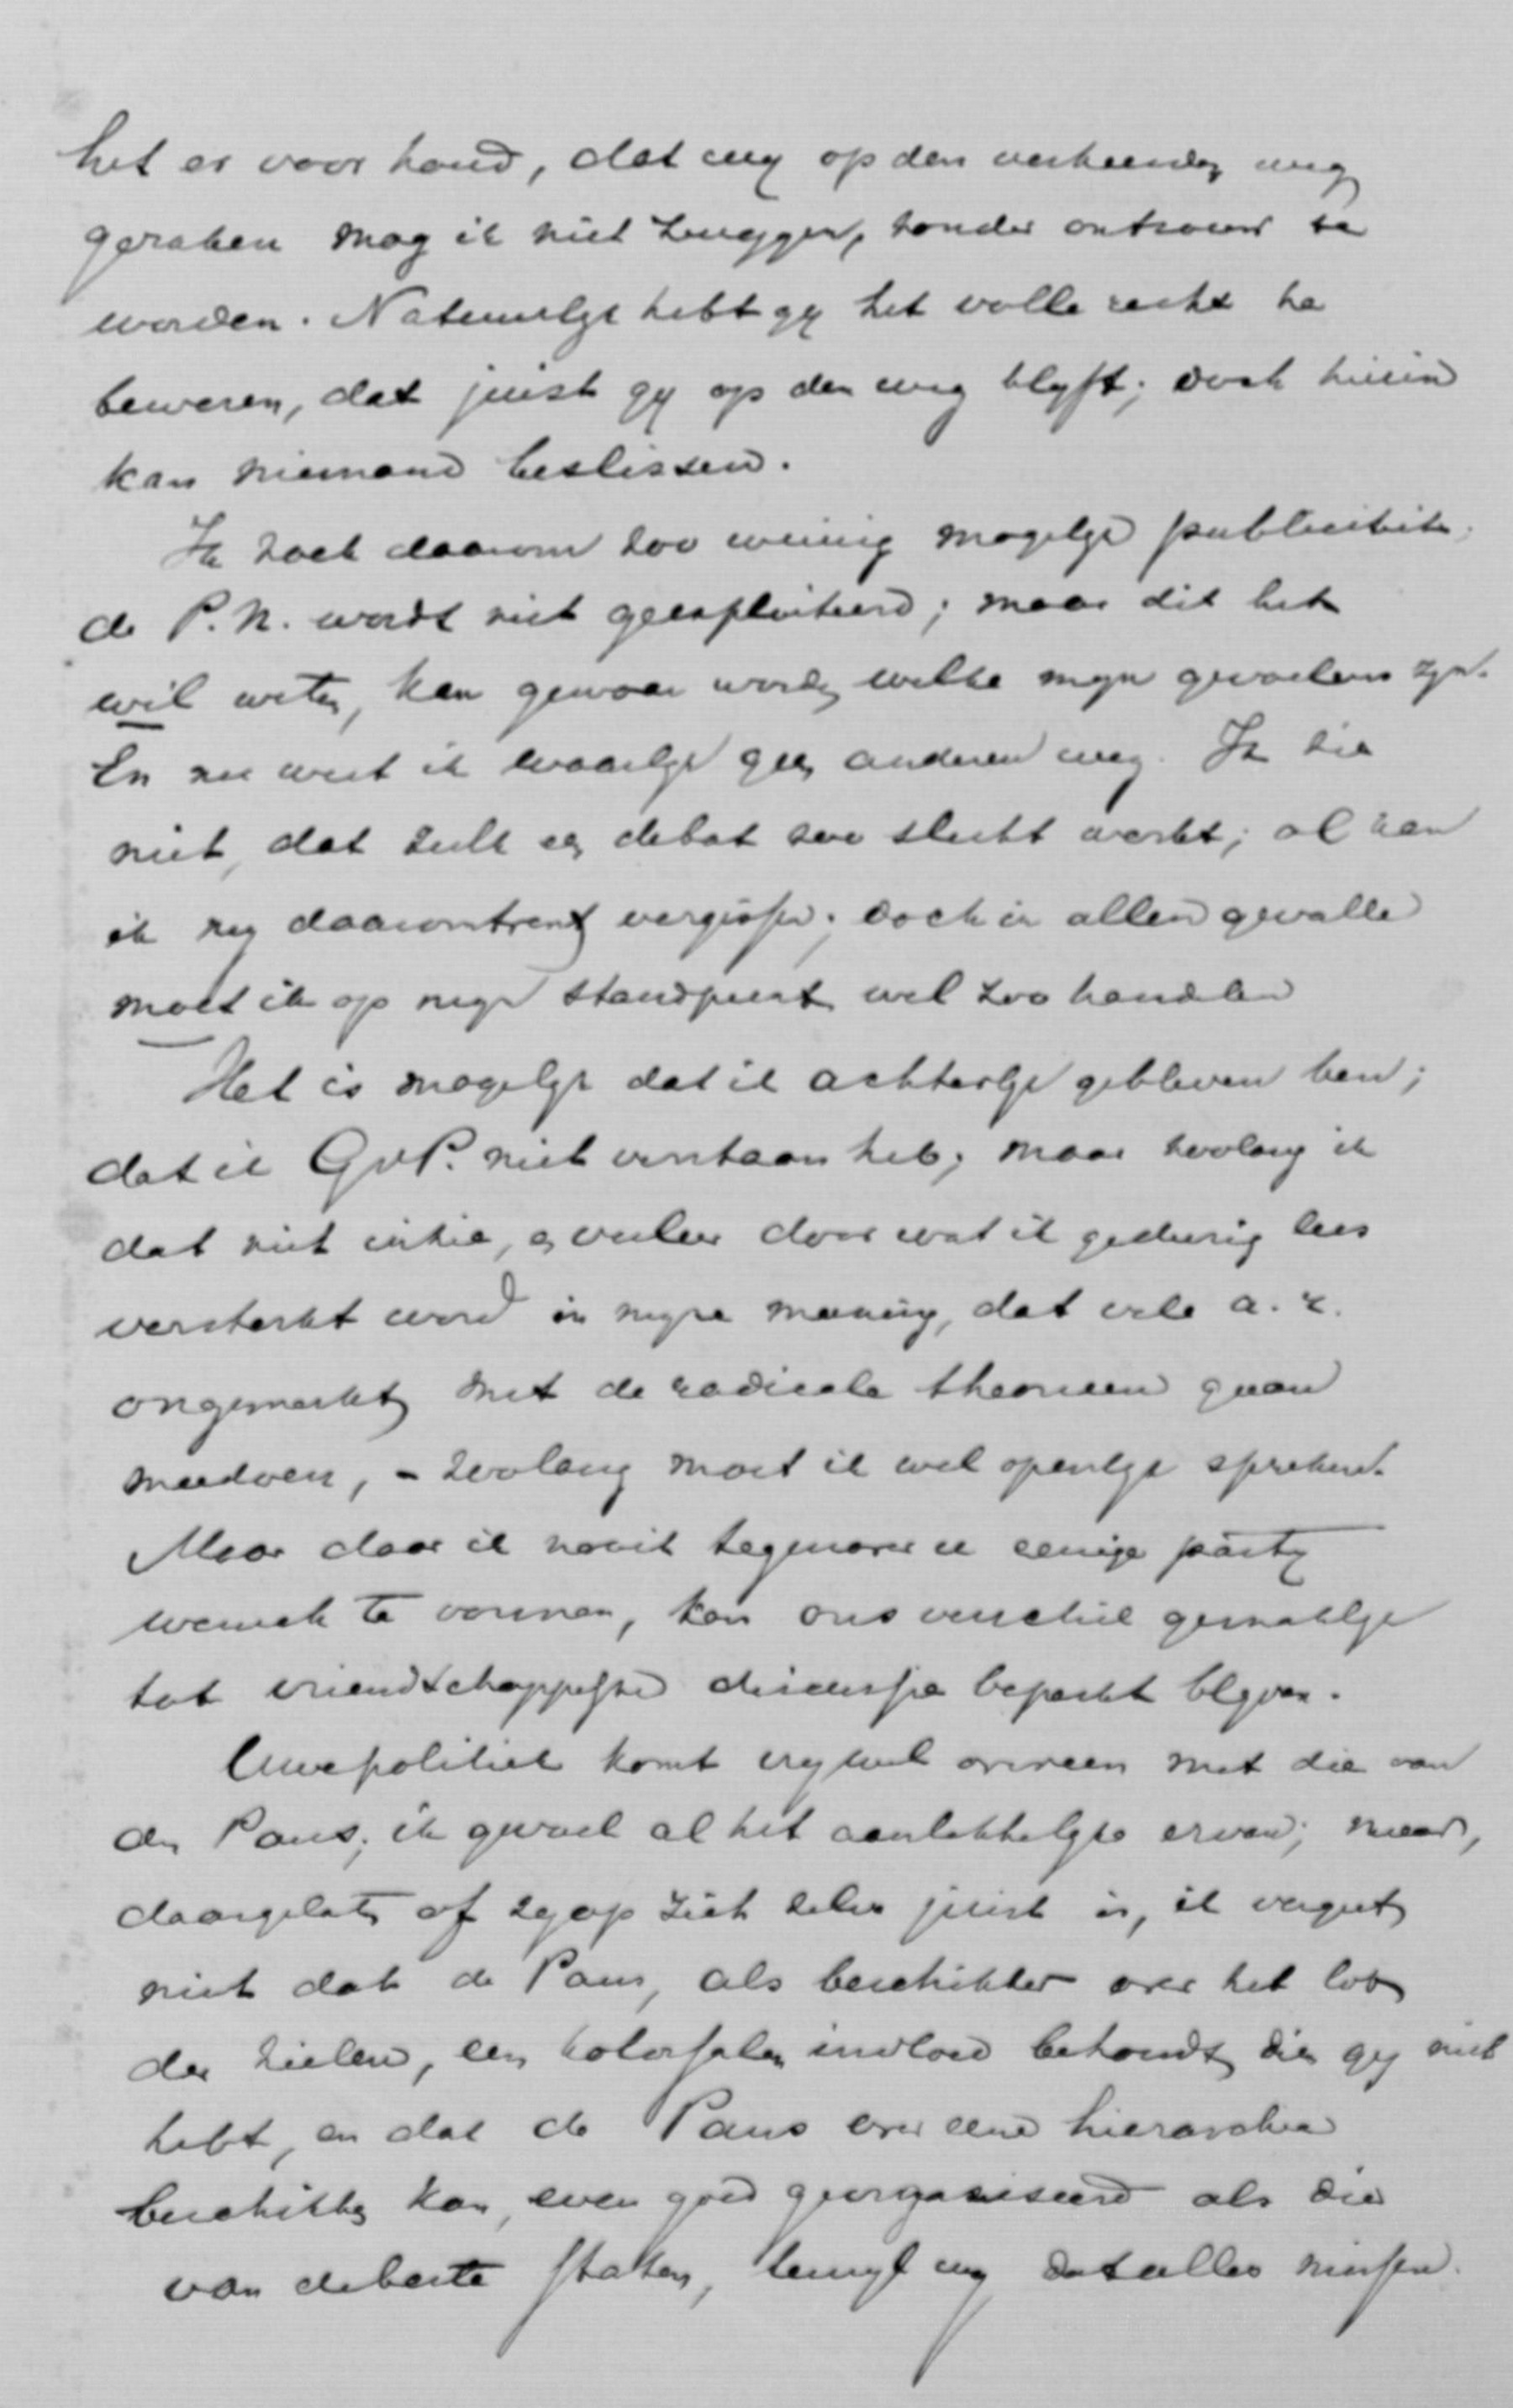 het er voor houd, dat wy op den verkeerden weg
geraken mag ik niet zwygen, zonder ontrouw te
worden. Natuurlyk hebt gy het volle recht te
beweren, dat juist gy op den weg blyft; doch hierin
kan niemand beslissen.
Ik zoek daarom zoo weinig mogelyk publiciteit;
de P.N. wordt niet geexploiteerd; maar die het
wil weten, kan gewaar worden welke myn gevoelens zyn.
En nu weet ik waarlyk geen anderen weg. Ik zie
niet, dat zulk een debat zoo slecht werkt; al kan
ik my daaromtrent vergissen; doch in allen gevalle
moet ik op myn standpunt wel zoo handelen
Het is mogelyk dat ik achterlyk gebleven ben;
dat ik GvP. niet verstaan heb; maar zoolang ik
dat niet inzie, en veeleer door wat ik gedurig lees
versterkt word in myne meening, dat vele a.r.
ongemerkt met de radicale theorieen gaan
meedoen, - zoolang moet ik wel openlyk spreken.
Maar daar ik nooit tegenover u eenige party
wensch te vormen, kan ons verschil gemaklyk
tot vriendschappelyke discussie beperkt blyven.
Uwe politiek komt vrywel overeen met die van
den Paus; ik gevoel al het aanlokkelyke ervan; maar,
daargelaten of zy op zich zelve juist is, ik vergeet
niet dat de Paus, als beschikker over het lot
der zielen, een kolossalen invloed behoudt, dien gy niet
hebt, en dat de Paus over eene hierarchie
beschikken kan, even goed georganiseerd als die
van de beste staten, terwyl wy dat alles missen.